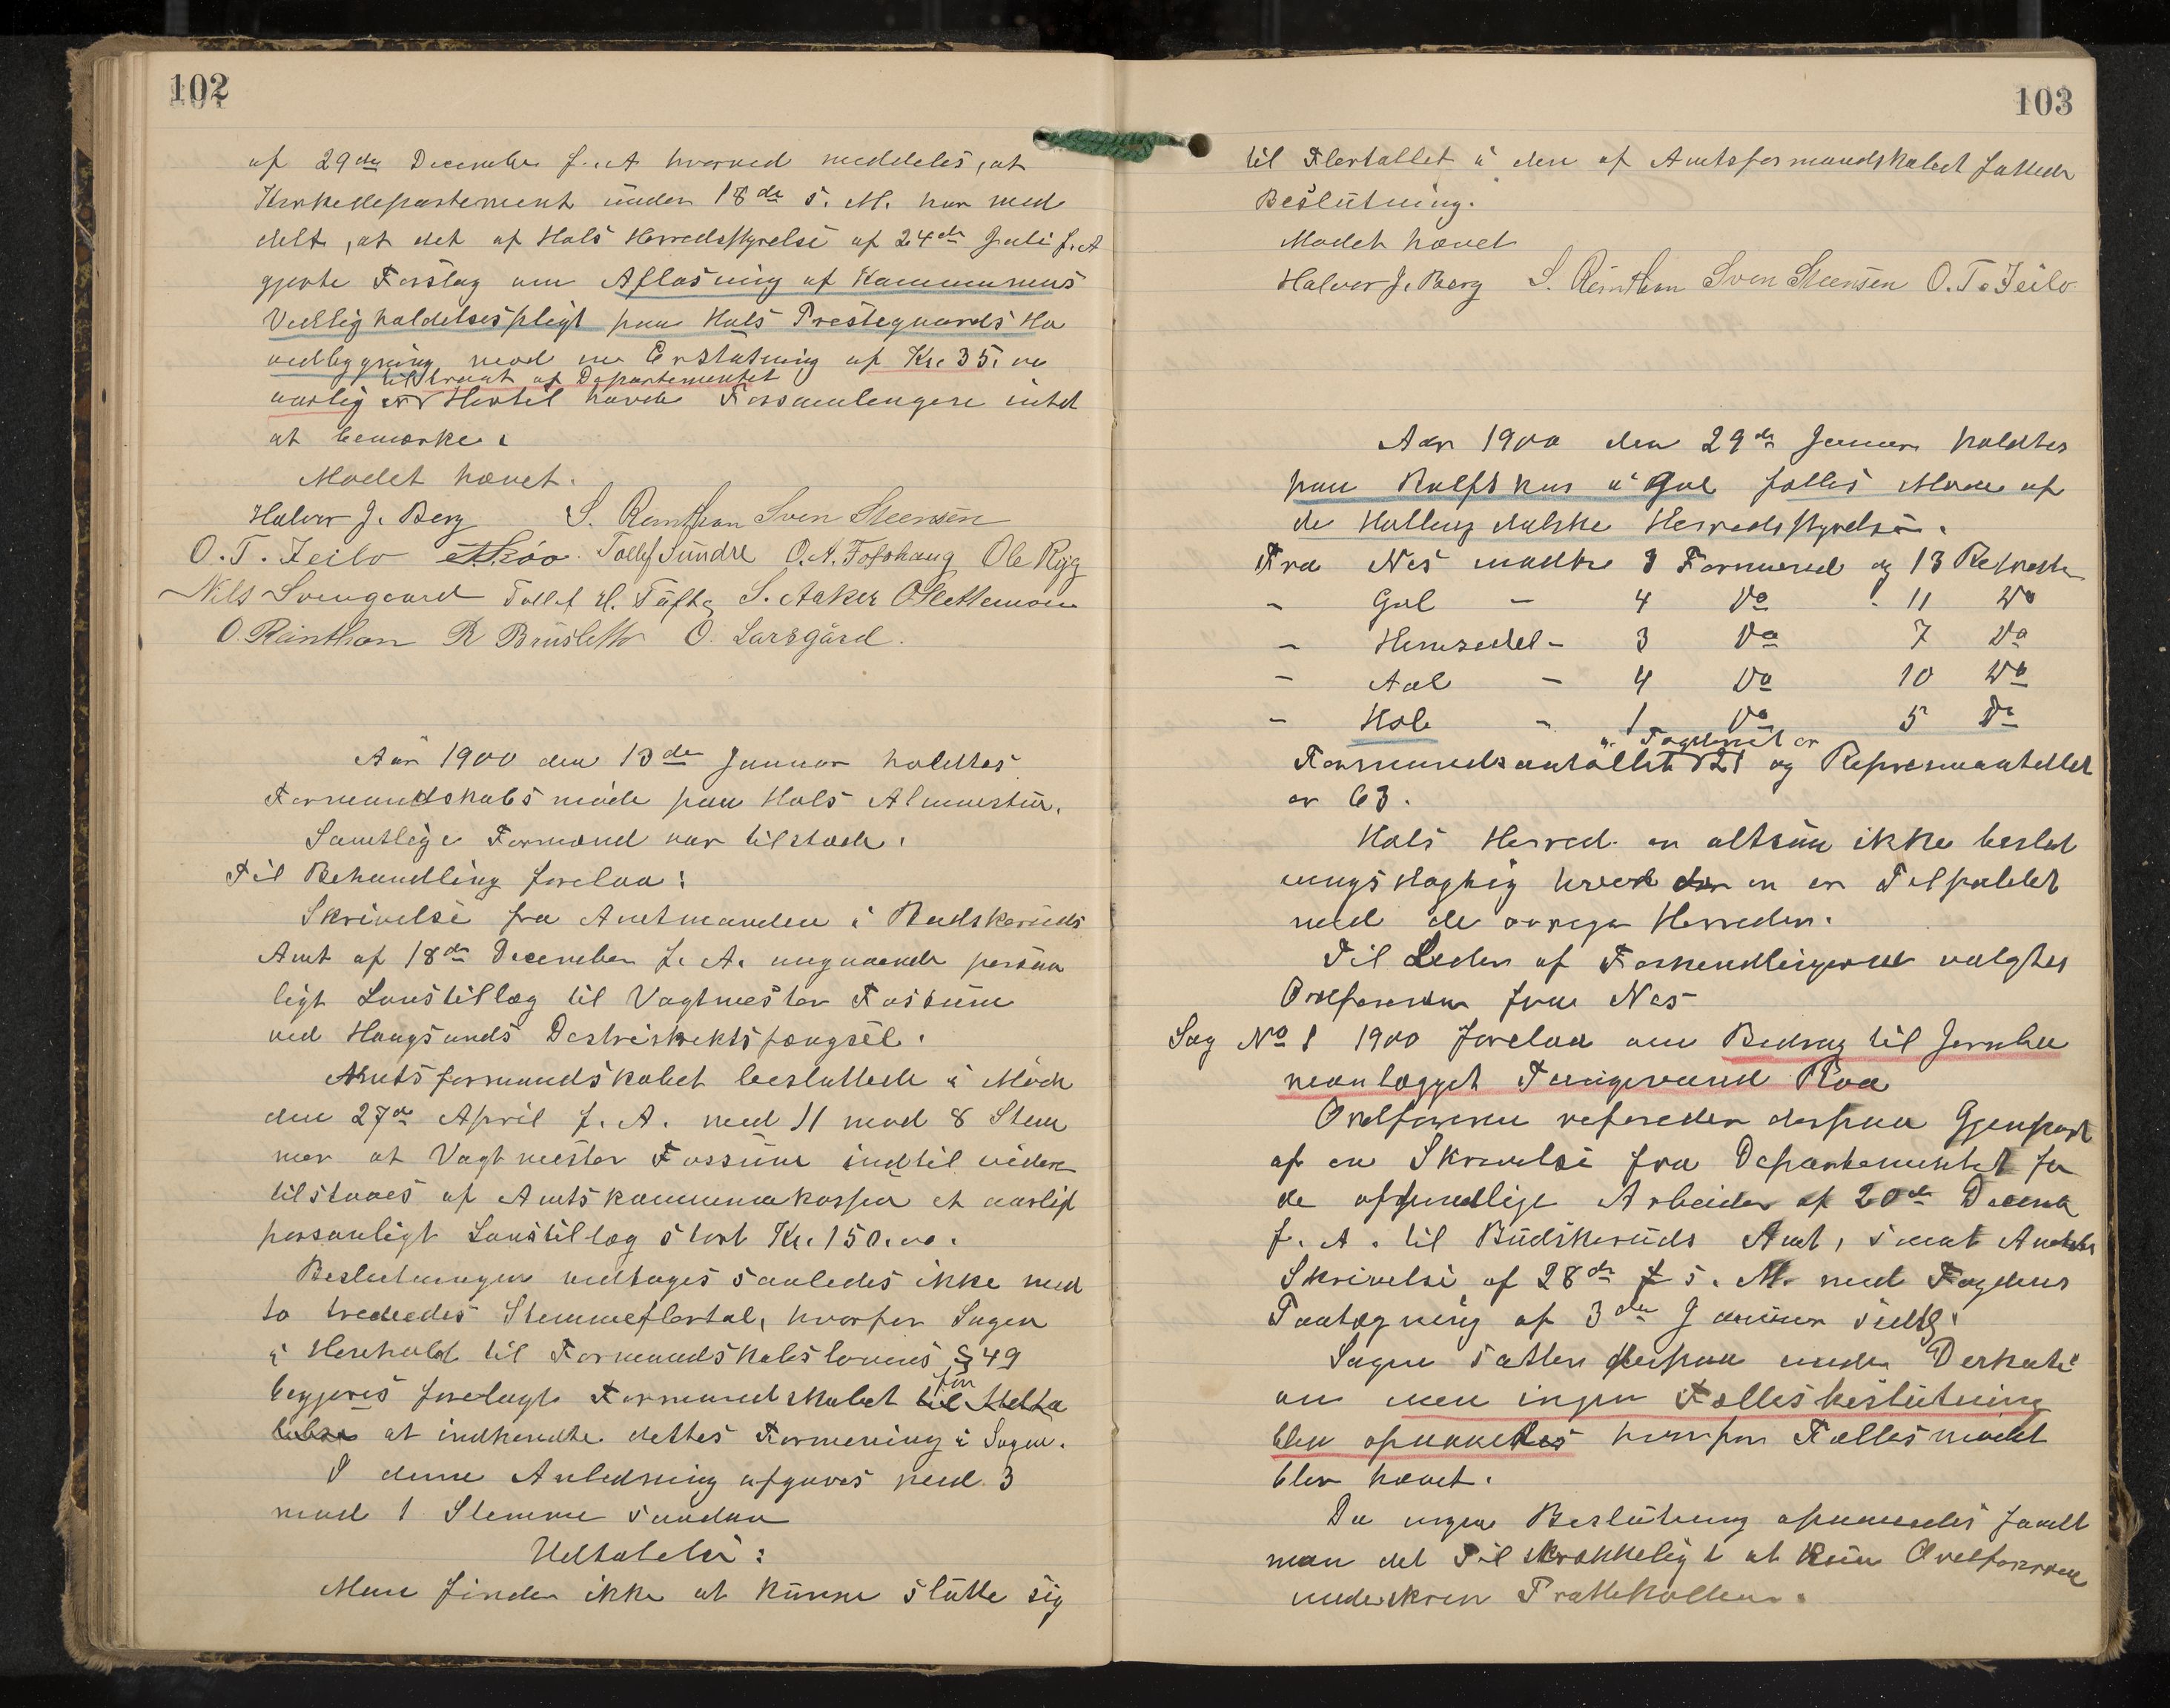 102
af 29de December f. A hvorved meddeles, at
Kirkedepartement under 18de s. M. har med
delt, at det af Hols Herredsstyrelse af 24de Juli f. A
gjorte Forslag om Afløsning af Kommunens
Vedligholdelsespligt paa Hols Prestegaards Ho
vedbygning mod en Erstatning af Kr. 35.00
tiltraat af Departementet
aarlig er Hertil havde Forsamlingen intet
at bemærke.
Mødet hævet.
Halvor J. Berg S. Reinthon Sven Steensen
O. T. Jeilo Tollef Sundre O. A. Fosshaug Ole Rygg
Nils Svengaard Tollef H. Tufte S. Aaker O Slettemoen
O. Reinthon R Brusletto O. Larsgård.
Aar 1900 den 13de Januar holdtes
Formandskabsmøde paa Hols Almuestue.
Samtlige Formænd var tilstæde.
Til Behandling forelaa:
Skrivelse fra Amtmanden i Budskeruds
Amt af 18de December f. A. angaaende person
ligt Lønstillæg til Vagtmester Fossum
ved Haugsunds Destriktsfængsel.
Amtsformandskabet besluttede i Møde
den 27de April f. A. med 11 mod 8 Stem
mer at Vagtmester Fossum indtil videre
tilstaaes af Amtskommunekassen et aarligt
personligt Lønstillæg stort Kr. 150.00.
Beslutningen vedtages saaledes ikke med
to trediedes Stemmeflertal, hvorfor Sagen
i Henhold til Formandskabslovens § 49
for
begjæres forelagt Formandskabet til
at indhendte dettes Formening i Sagen.
I denne Anledning afgaves med 3
mod 1 Stemme saadan
Udtalelse:
Man finder ikke at kunne slutte sig
103
til Flertallet i den af Amtsformandskabet fattede
Beslutning.
Mødet hævet
Halvor J. Berg S. Reinthon Sven Steensen O. T. Jeilo
Aar 1900 den 29de Januar holdtes
paa Rolfshus i Gol fælles Møde af
de Hallingdalske Herredsstyrelser.
Fra Nes mødte 9 Formænd og 13 Represten
- Gol - 4 Do - 11 Do
- Hemsedal - 3 Do 7 Do
- Aal - 4 Do 10 Do
- Hol - 1 Do 5 Do
Formandsantallet 21 og Represenantallet
er 63.
Hols Herred er altsaa ikke beslut
ningsdygtig hvad der en er Tilfældet
med de øvrige Herreder.
Til Leder af Forhandlingerne valgtes
Ordføreren fra Nes
Sag No 1 1900 Forelaa om Bedrag til Jernba
neanlægget Gulsvik Roa
Ordføreren refereder derpaa Gjenpart
af en Skrivelse fra Departementet for
de offentlige Arbeider af 20de Decemb
f. A. til Budskeruds Amt, samt Amtets
Skrivelse af 28de s. M. med Fogdens
Paategning af 3die Januar sidstl.
Sagen sattes derpaa under Deskusi
on men ingen Fællesbeslutning
blev opnaaedes hvorfor Fællesmødet
blev hævet.
Da ingen Beslutning opnaaedes fandt
man det Tilstrækkeligt at kun Ordføreren
underskrev Prottekollen.